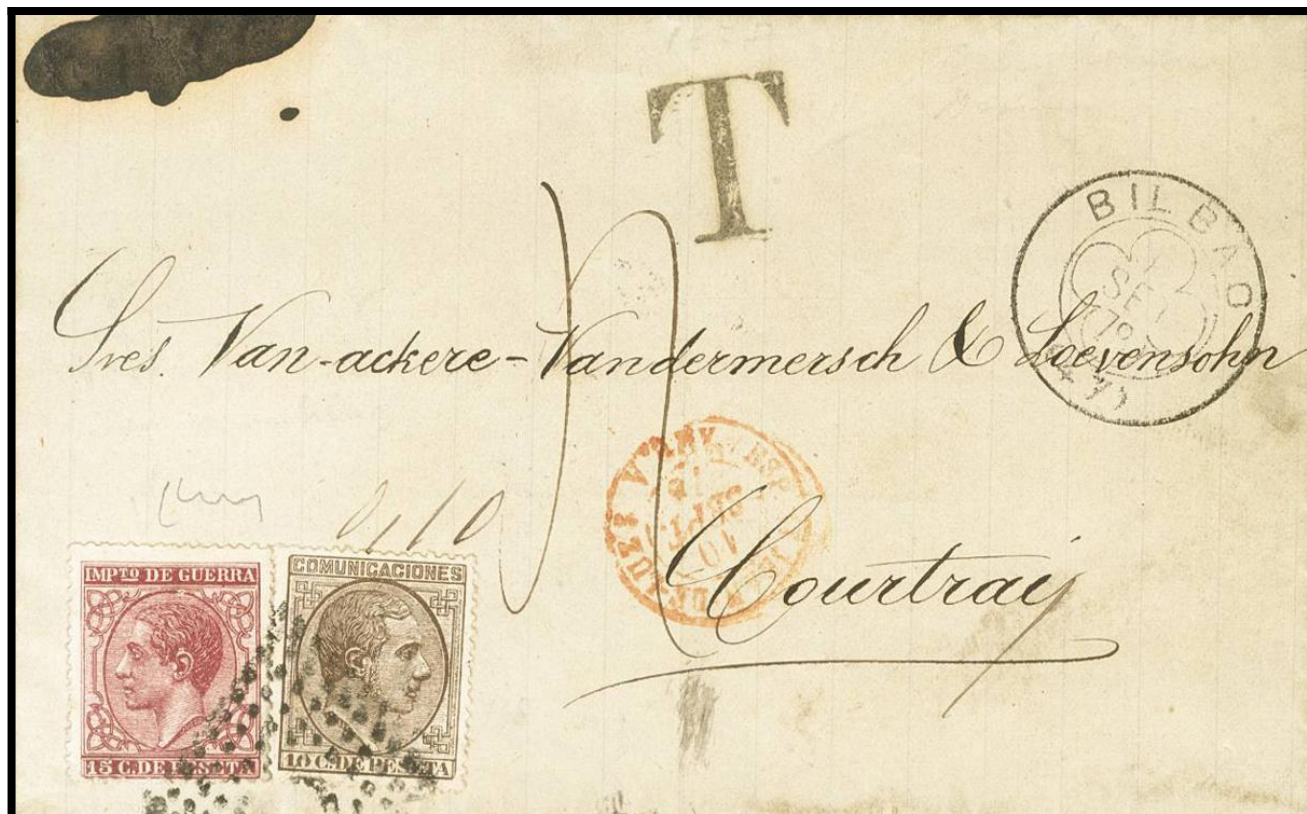 T
BILBAO
SET
79
Sres. Van-ackere-Vandermersch & Loevensohn
10
SEPT.
Courtraij
0,10
IMPTO DE GUERRA
15 C. DE PESETA
COMUNICACIONES
10 C. DE PESETA